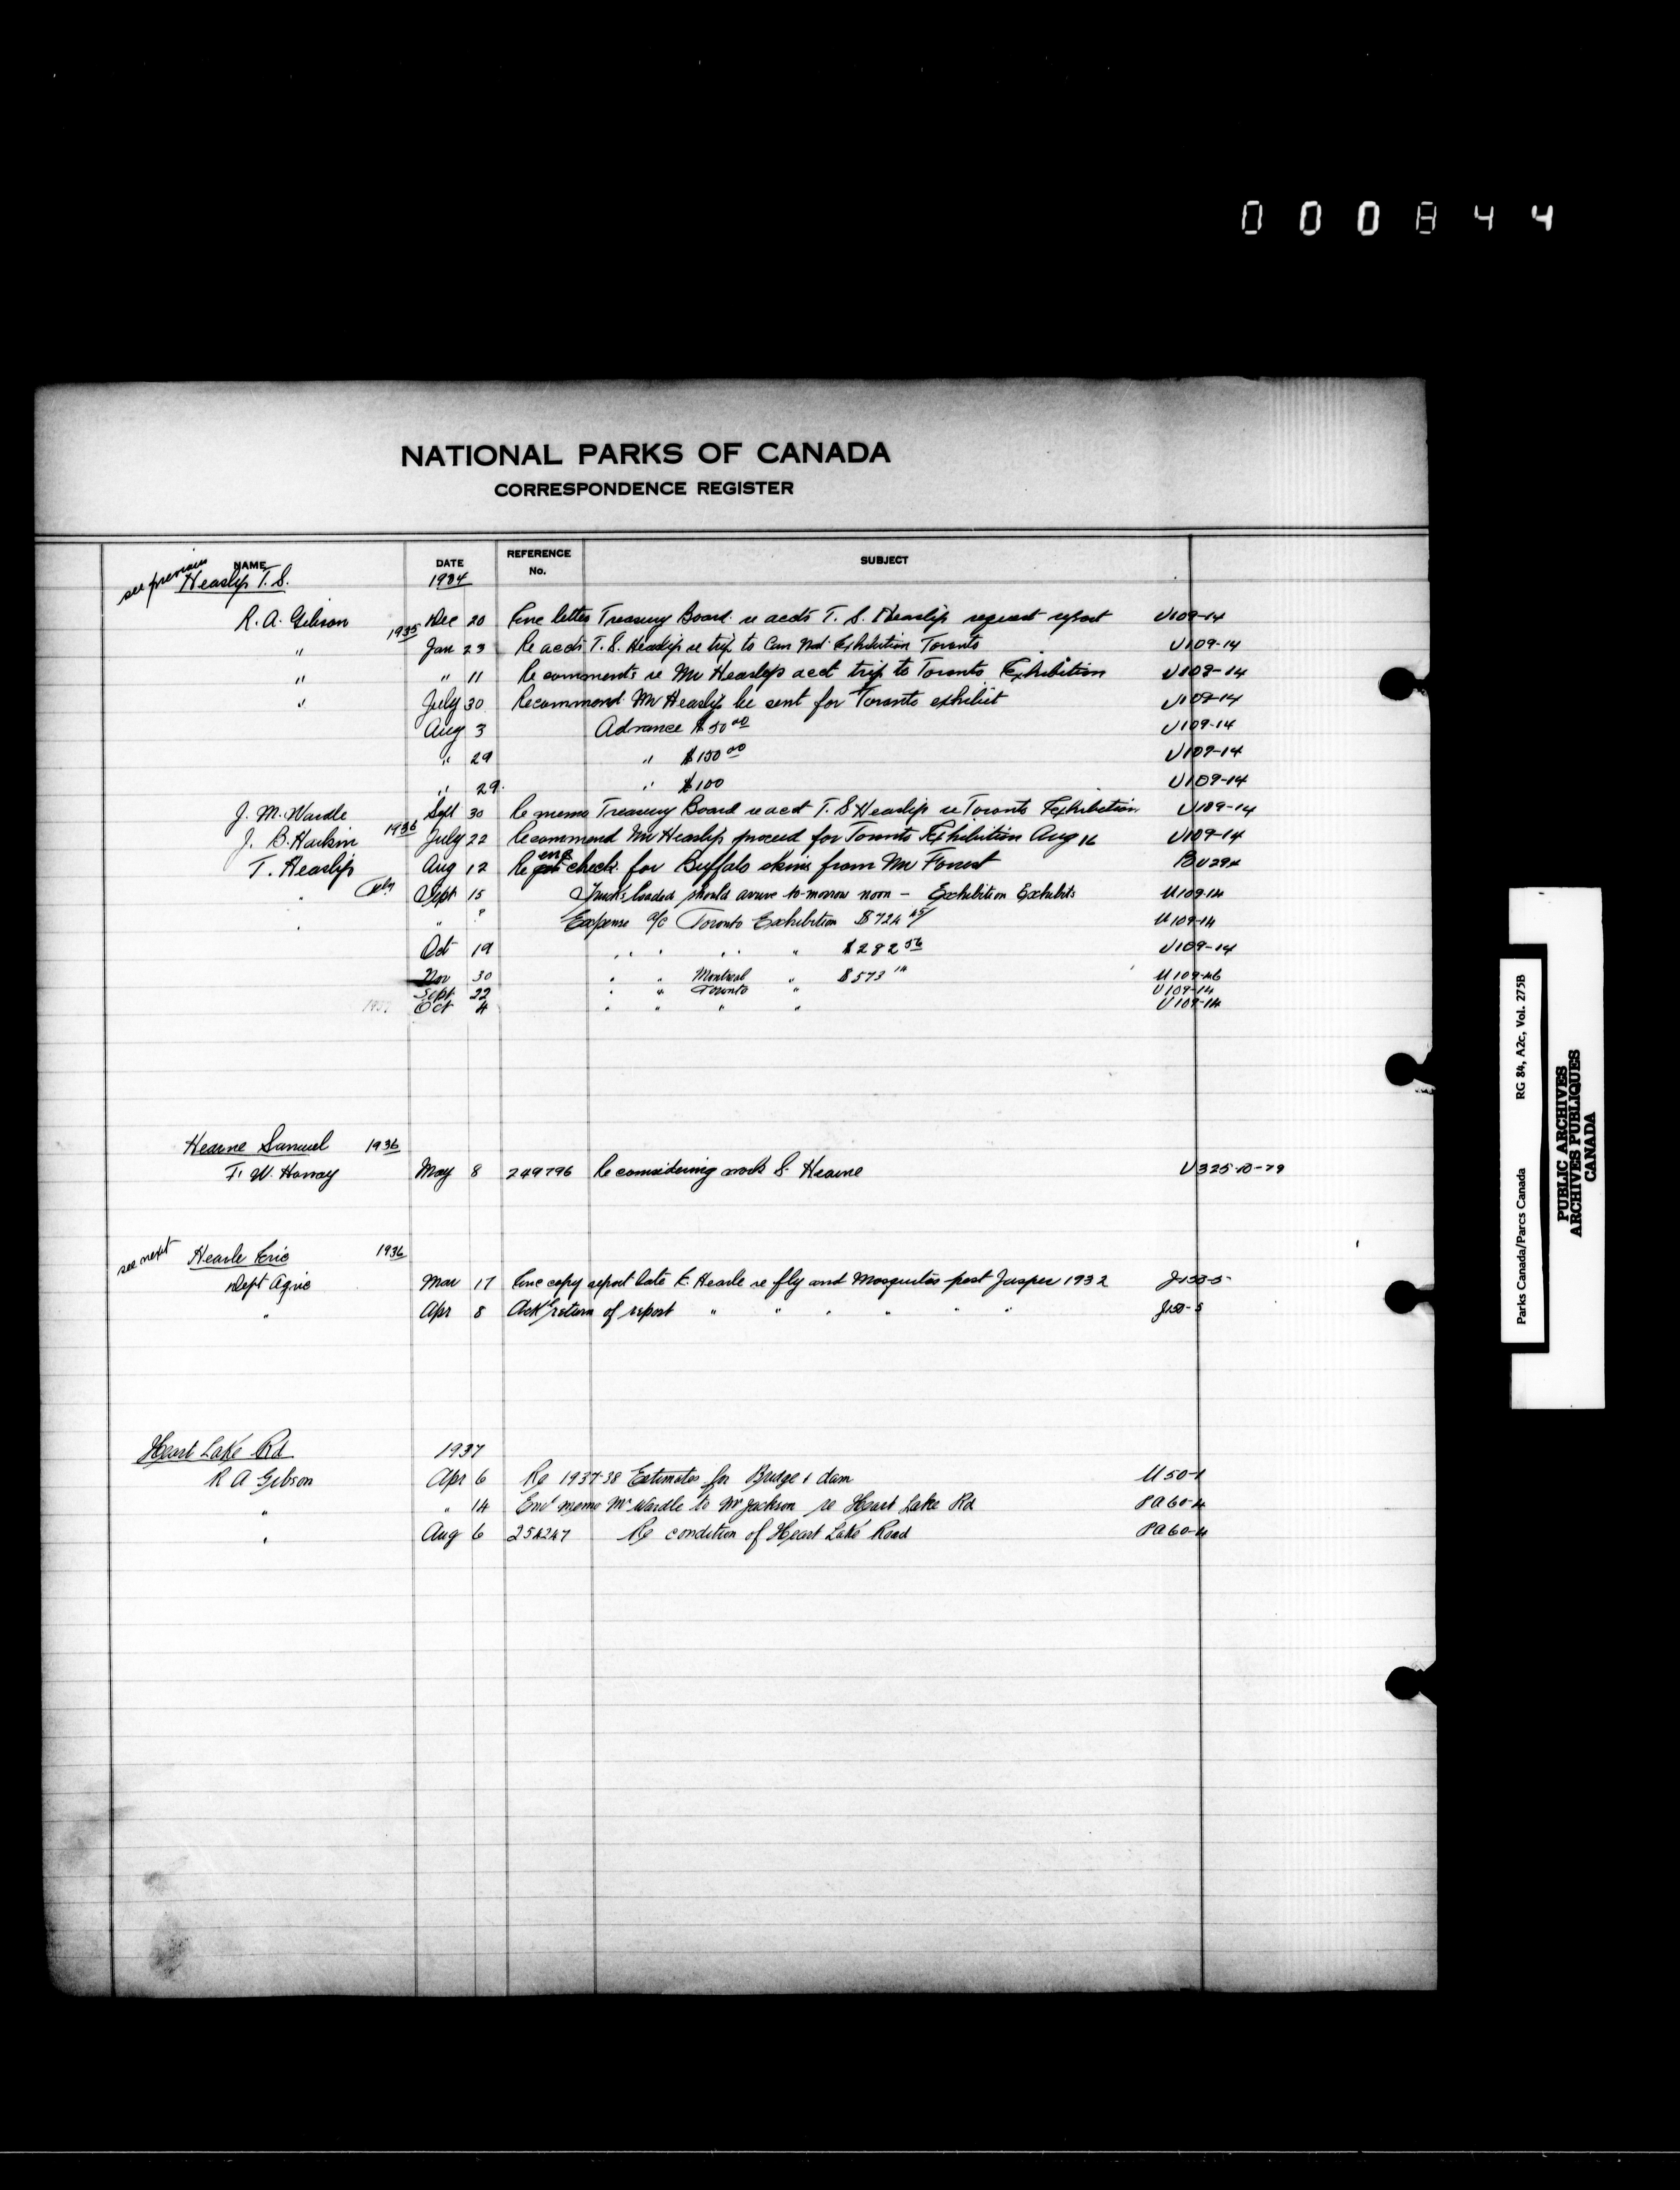 000844
NATIONAL PARKS OF CANADA
CORRESPONDENCE REGISTER
NAME DATE REFERENCE No. SUBJECT
see previous Heaslip T. S. 1934
R. A. Gibson Dec 20 Enc letter Treasury Board re accts T. S. Heaslip request report U109-14
1935
" Jan 23 Re accts T. S. Heaslip re trip to Can Nat. Exhibition Toronto U109-14
" " 11 Re comments re Mr Heaslip's acct trip to Toronto Exhibition U109-14
" July 30 Recommend Mr Heaslip be sent for Toronto exhibit U109-14
Aug 3 Advance $50 00 U109-14
" 29 " $150 00 U109-14
" 29 " $100 U109-14
J. M. Wardle Sept 30 Re memo Treasury Board re acct T. S Heaslip re Toronto Exhibition U109-14
J. B. Harkin 1936 July 22 Recommend Mr Heaslip proceed for Toronto Exhibition Aug 16 U109-14
T. Heaslip Aug 12 Re enc check for Buffalo skins from Mr Forrest BU294
" Sept 15 Trucks loaded should arrive to-morrow noon - Exhibition Exhibits U109-14
" " ? Expense a/c Toronto Exhibition $724 45 U109-14
Oct 19 " " " " $282 56 U109-14
Nov 30 " " Montreal " $573 14 U109-46
Sept 22 " " Toronto " U109-14
Oct 4 " " " " U109-14
Hearne Samuel 1936
F. W. Howay May 8 249796 Re considering work S. Hearne U325-10-79
see next Hearle Eric 1936
Dept Agric Mar 17 Enc copy report late E. Hearle re fly and Mosquitos pest Jasper 1932 J150-5
" Apr 8 Ack return of report " " " " " " J150-5
Heart Lake Rd 1937
R A Gibson Apr 6 Re 1937-38 Estimates for Bridge & dam U50-1
" " 14 Enc memo Mr Wardle to Mr Jackson re Heart Lake Rd PA60-4
" Aug 6 254247 Re condition of Heart Lake Road PA60-4
Parks Canada/Parcs Canada RG 84, A2c, Vol. 275B
PUBLIC ARCHIVES
ARCHIVES PUBLIQUES
CANADA